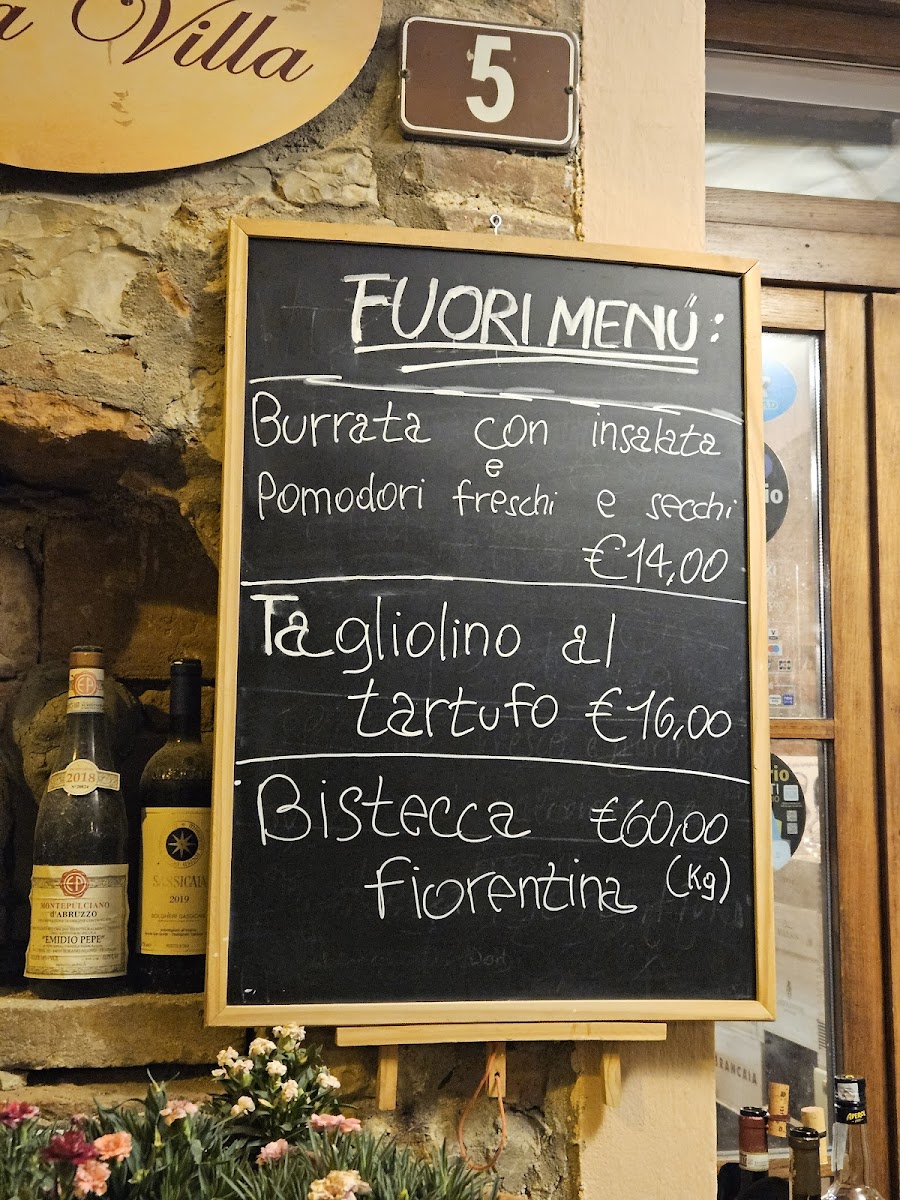 Villa
5
FUORI MENÚ:
Burrata con insalata
e
Pomodori freschi e secchi
€14,00
Tagliolino al
tartufo €16,00
Bistecca €60,00
fiorentina (Kg)
2018
EP
MONTEPULCIANO
d'ABRUZZO
"EMIDIO PEPE"
SASSICAIA
2019
BOLGHERI SASSICAIA
APEROL